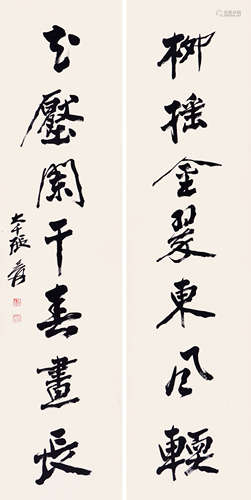 柳摇金翠東风輭
花壓闌干春晝長
大千張爰